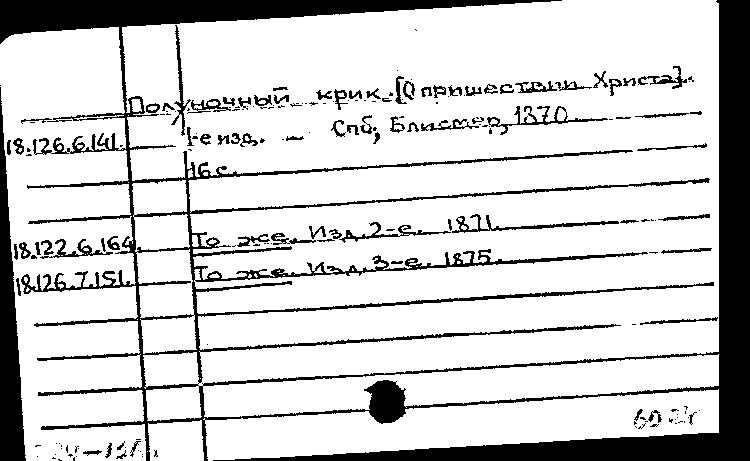 Полуночный крик. [О пришествии Христа].
18.126.6.141. 1-е изд. — Спб, Блисмер, 1870.
16 с.
18.122.6.164. То же. Изд. 2-е. 1871.
18.126.7.151. То же. Изд. 3-е. 1875.